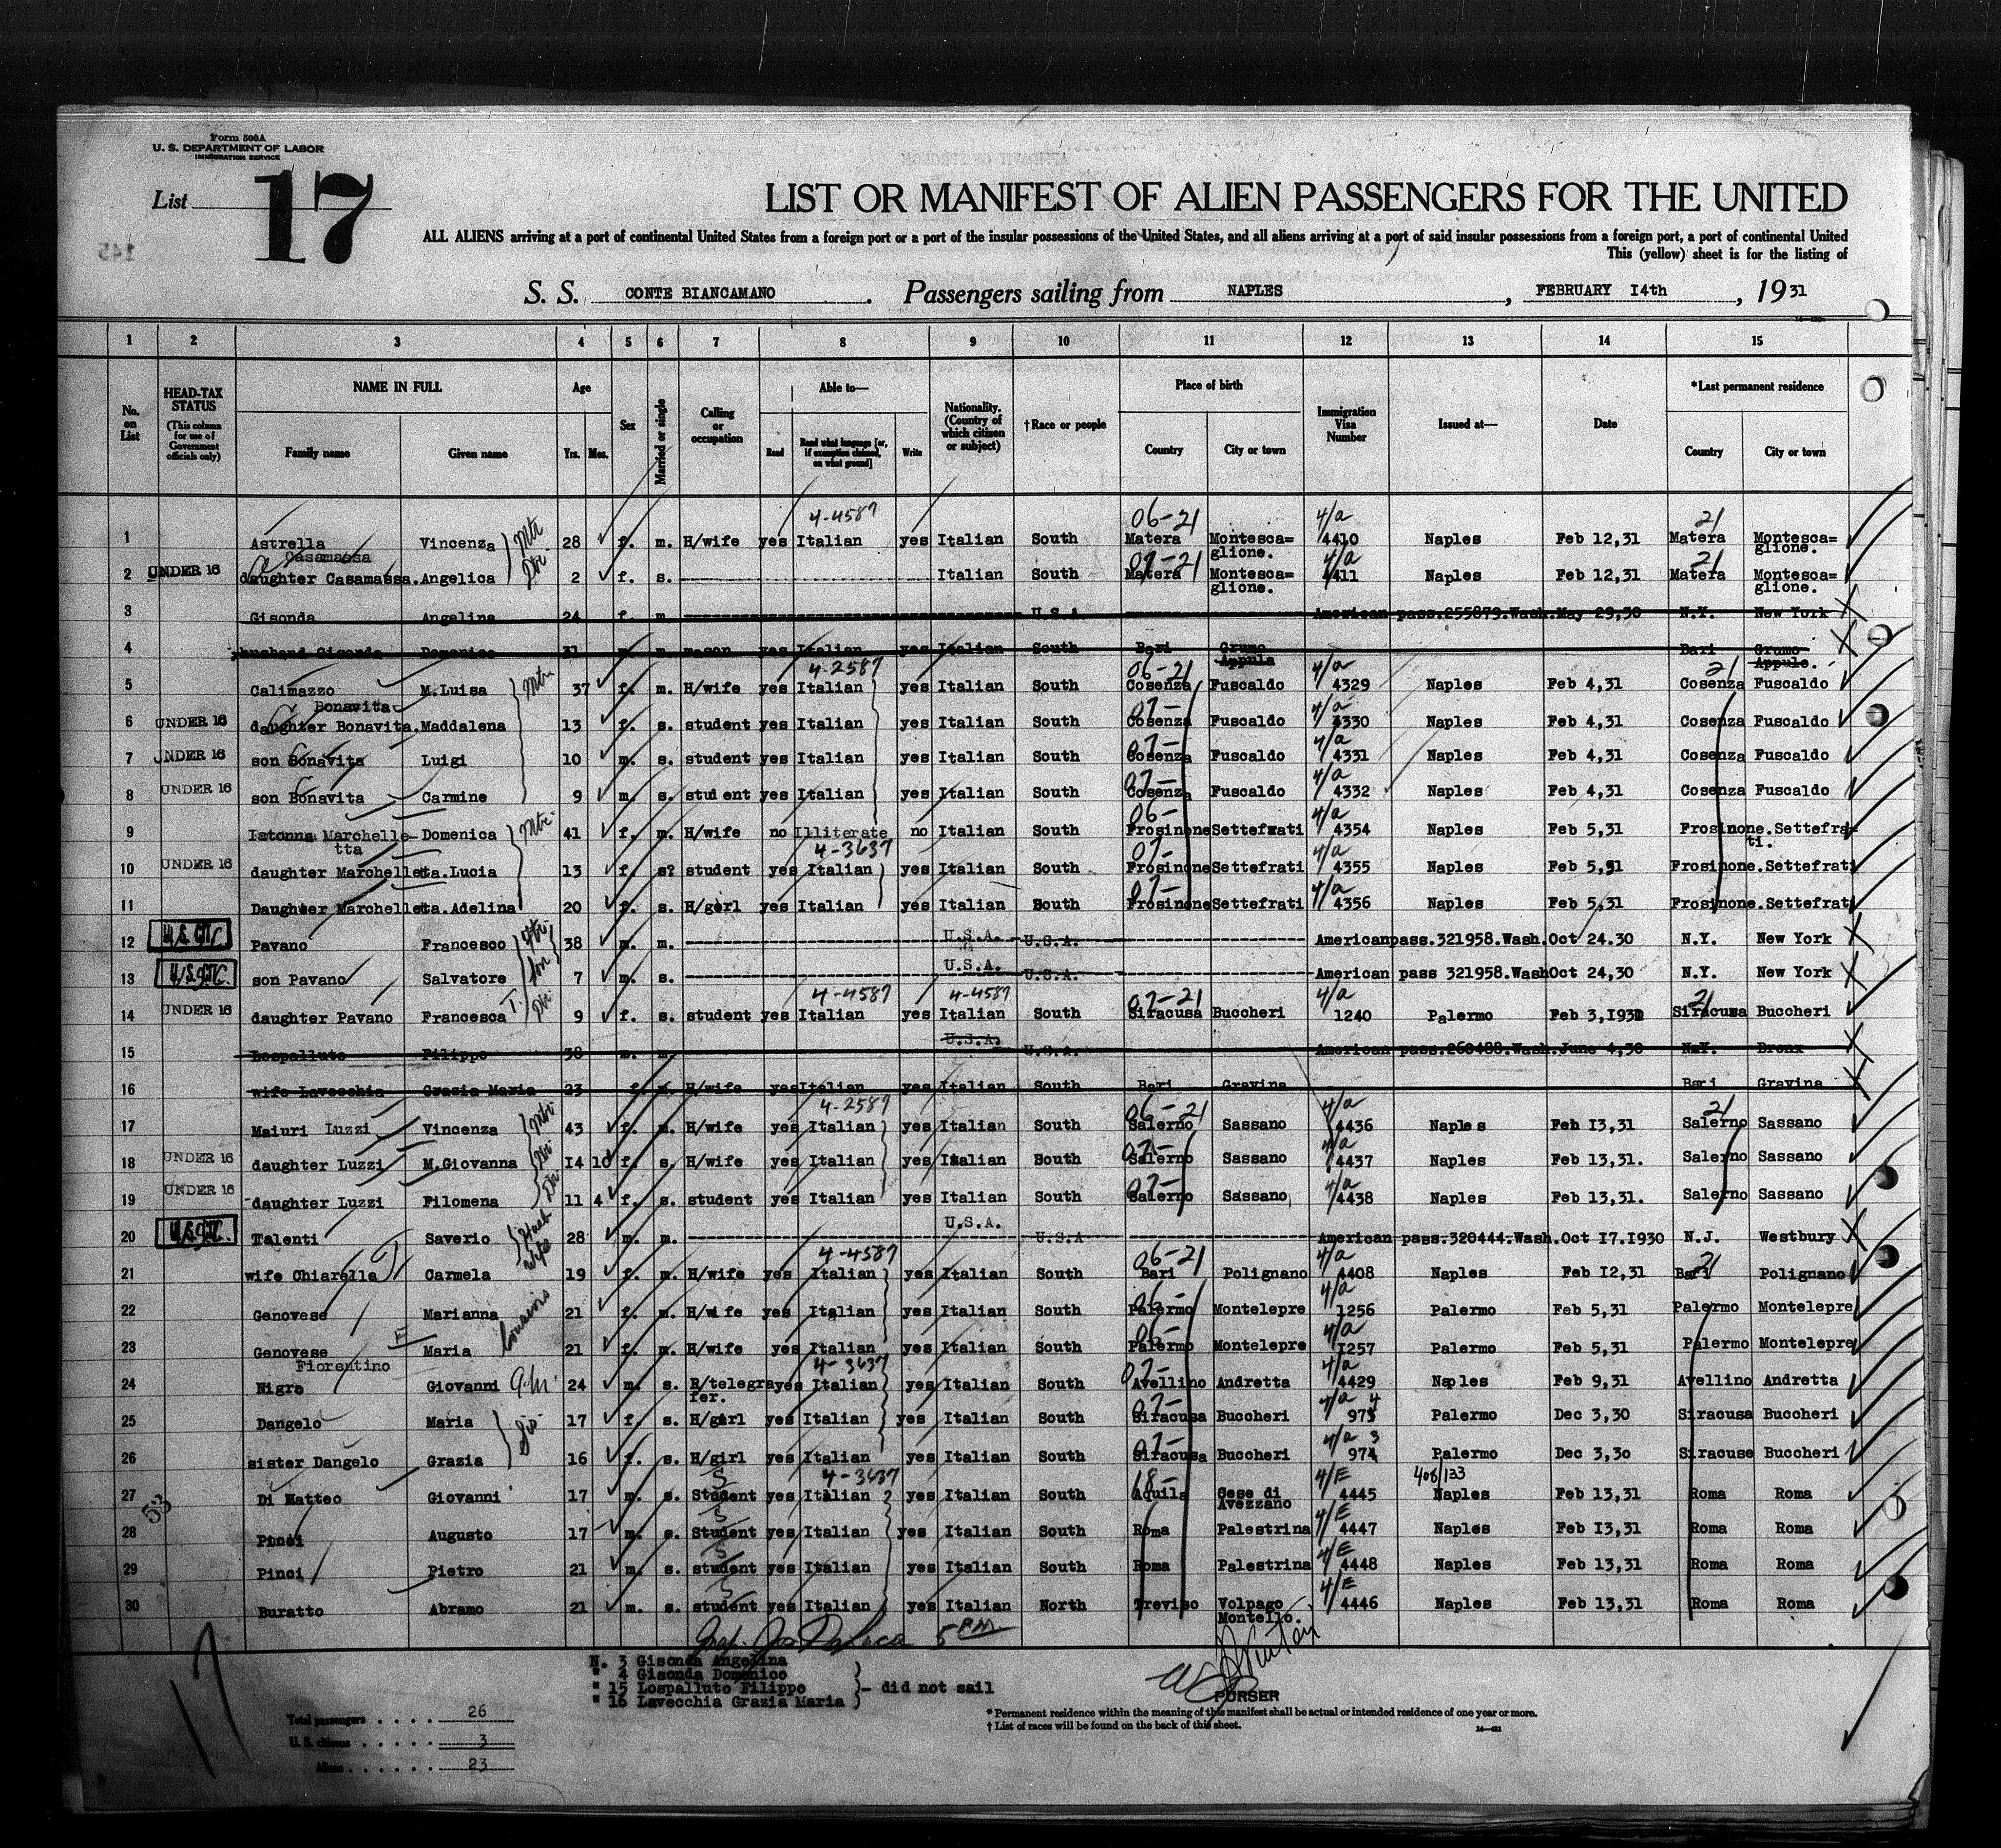 Form 500A
U. S. DEPARTMENT OF LABOR
IMMIGRATION SERVICE
List 17
LIST OR MANIFEST OF ALIEN PASSENGERS FOR THE UNITED
ALL ALIENS arriving at a port of continental United States from a foreign port or a port of the insular possessions of the United States, and all aliens arriving at a port of said insular possessions from a foreign port, a port of continental United
This (yellow) sheet is for the listing of
S. S. CONTE BIANCAMANO . Passengers sailing from NAPLES , FEBRUARY 14th , 1931
1 2 3 4 5 6 7 8 9 10 11 12 13 14 15
No. on List
HEAD-TAX STATUS (This column for use of Government officials only)
NAME IN FULL Family name Given name
Age Yrs. Mos.
Sex
Married or single
Calling or occupation
Able to— Read Read what language [or, if exemption claimed, on what ground] Write
Nationality. (Country of which citizen or subject)
†Race or people
Place of birth Country City or town
Immigration Visa Number
Issued at—
Date
*Last permanent residence Country City or town
4-4587 06-21 4/a 21
1 Astrella Vincenza 28 f. m. H/wife yes Italian yes Italian South Matera Montesca= glione. 4410 Naples Feb 12,31 Matera Montesca= glione.
Casamassa
2 UNDER 16 daughter Casamassa. Angelica 2 f. s. Italian South Matera Montesca= glione. 4411 Naples Feb 12,31 Matera Montesca= glione.
3 Gisonda Angelina 24 f. m. U.S.A. American pass.255879.Wash.May 29,30 N.Y. New York
4 husband Gisonda Domenico 31 m. m. mason yes Italian yes Italian South Bari Grumo Appula Bari Grumo Appulo.
4-2587 06-21 4/a 21
5 Calimazzo M.Luisa 37 f. m. H/wife yes Italian yes Italian South Cosenza Fuscaldo 4329 Naples Feb 4,31 Cosenza Fuscaldo
Bonavita
6 UNDER 16 daughter Bonavita. Maddalena 13 f. s. student yes Italian yes Italian South Cosenza Fuscaldo 4330 Naples Feb 4,31 Cosenza Fuscaldo
7 UNDER 16 son Bonavita Luigi 10 m. s. student yes Italian yes Italian South Cosenza Fuscaldo 4331 Naples Feb 4,31 Cosenza Fuscaldo
8 UNDER 16 son Bonavita Carmine 9 m. s. student yes Italian yes Italian South Cosenza Fuscaldo 4332 Naples Feb 4,31 Cosenza Fuscaldo
9 Istonna Marchelle-tta Domenica 41 f. m. H/wife no Illiterate no Italian South Frosinone Settefrati 4354 Naples Feb 5,31 Frosinone.Settefra-ti.
4-3637
10 UNDER 16 daughter Marchelletta.Lucia 13 f. s? student yes Italian yes Italian South Frosinone Settefrati 4355 Naples Feb 5,31 Frosinone.Settefrati
11 Daughter Marchelletta.Adelina 20 f. s. H/gerl yes Italian yes Italian South Frosinone Settefrati 4356 Naples Feb 5,31 Frosinone.Settefrati
12 U.S. CIT. Pavano Francesco 38 m. m. U.S.A. U.S.A. American pass.321958.Wash.Oct 24.30 N.Y. New York
13 U.S. CIT. son Pavano Salvatore 7 m. s. U.S.A. U.S.A. American pass 321958.Wash Oct 24,30 N.Y. New York
4-4587 4-4587 07-21 4/a 21
14 UNDER 16 daughter Pavano Francesca T. 9 f. s. student yes Italian yes Italian South Siracusa Buccheri 1240 Palermo Feb 3,1931 Siracusa Buccheri
15 Lospalluto Filippo 38 m. m. U.S.A. U.S.A. American pass.260488.Wash.June 4,30 N.Y. Bronx
16 wife Lavecchia Grazia Maria 23 f. m. H/wife yes Italian yes Italian South Bari Gravina Bari Gravina
4-2587 06-21 4/a 21
17 Maiuri Luzzi Vincenza 43 f. m. H/wife yes Italian yes Italian South Salerno Sassano 4436 Naples Feb 13,31 Salerno Sassano
18 UNDER 16 daughter Luzzi M.Giovanna 14 10 f. s. H/wife yes Italian yes Italian South Salerno Sassano 4437 Naples Feb 13,31. Salerno Sassano
19 UNDER 16 daughter Luzzi Filomena 11 4 f. s. student yes Italian yes Italian South Salerno Sassano 4438 Naples Feb 13,31. Salerno Sassano
20 U.S. CIT. Talenti Saverio 28 m. m. U.S.A. U.S.A American pass.320444.Wash.Oct 17.1930 N.J. Westbury
4-4587 06-21 4/a 21
21 wife Chiarella T. Carmela 19 f. m. H/wife yes Italian yes Italian South Bari Polignano 4408 Naples Feb 12,31 Bari Polignano
22 Genovese Marianna 21 f. m. H/wife yes Italian yes Italian South Palermo Montelepre 1256 Palermo Feb 5,31 Palermo Montelepre
23 Genovese F Maria cousins 21 f. m. H/wife yes Italian yes Italian South Palermo Montelepre 1257 Palermo Feb 5,31 Palermo Montelepre
Fiorentino 4-3637
24 Nigro Giovanni 24 m. s. R/telegra fer. yes Italian yes Italian South Avellino Andretta 4429 Naples Feb 9,31 Avellino Andretta
25 Dangelo Maria 17 f. s. H/gerl yes Italian yes Italian South Siracusa Buccheri 973 4 Palermo Dec 3,30 Siracusa Buccheri
26 sister Dangelo Grazia Sis. 16 f. s. H/girl yes Italian yes Italian South Siracusa Buccheri 974 3 Palermo Dec 3,30 Siracuse Buccheri
4-3637 18- 4/E 408/133
27 Di Matteo Giovanni 17 m. s. Student yes Italian yes Italian South Aquila Cese di Avezzano 4445 Naples Feb 13,31 Roma Roma
53
28 Pinci Augusto 17 m. s. Student yes Italian yes Italian South Roma Palestrina 4447 Naples Feb 13,31 Roma Roma
29 Pinci Pietro 21 m. s. student yes Italian yes Italian South Roma Palestrina 4448 Naples Feb 13,31 Roma Roma
30 Buratto Abramo 21 m. s. student yes Italian yes Italian North Treviso Volpago Montello. 4446 Naples Feb 13,31 Roma Roma
5 PM
N. 3 Gisonda Angelina
" 4 Gisonda Domenico
" 15 Lospalluto Filippo
" 16 Lavecchia Grazia Maria
- did not sail
PURSER
17
Total passengers . . . . 26
U. S. citizens . . . . . 3
Aliens . . . . . . 23
* Permanent residence within the meaning of this manifest shall be actual or intended residence of one year or more.
† List of races will be found on the back of this sheet.